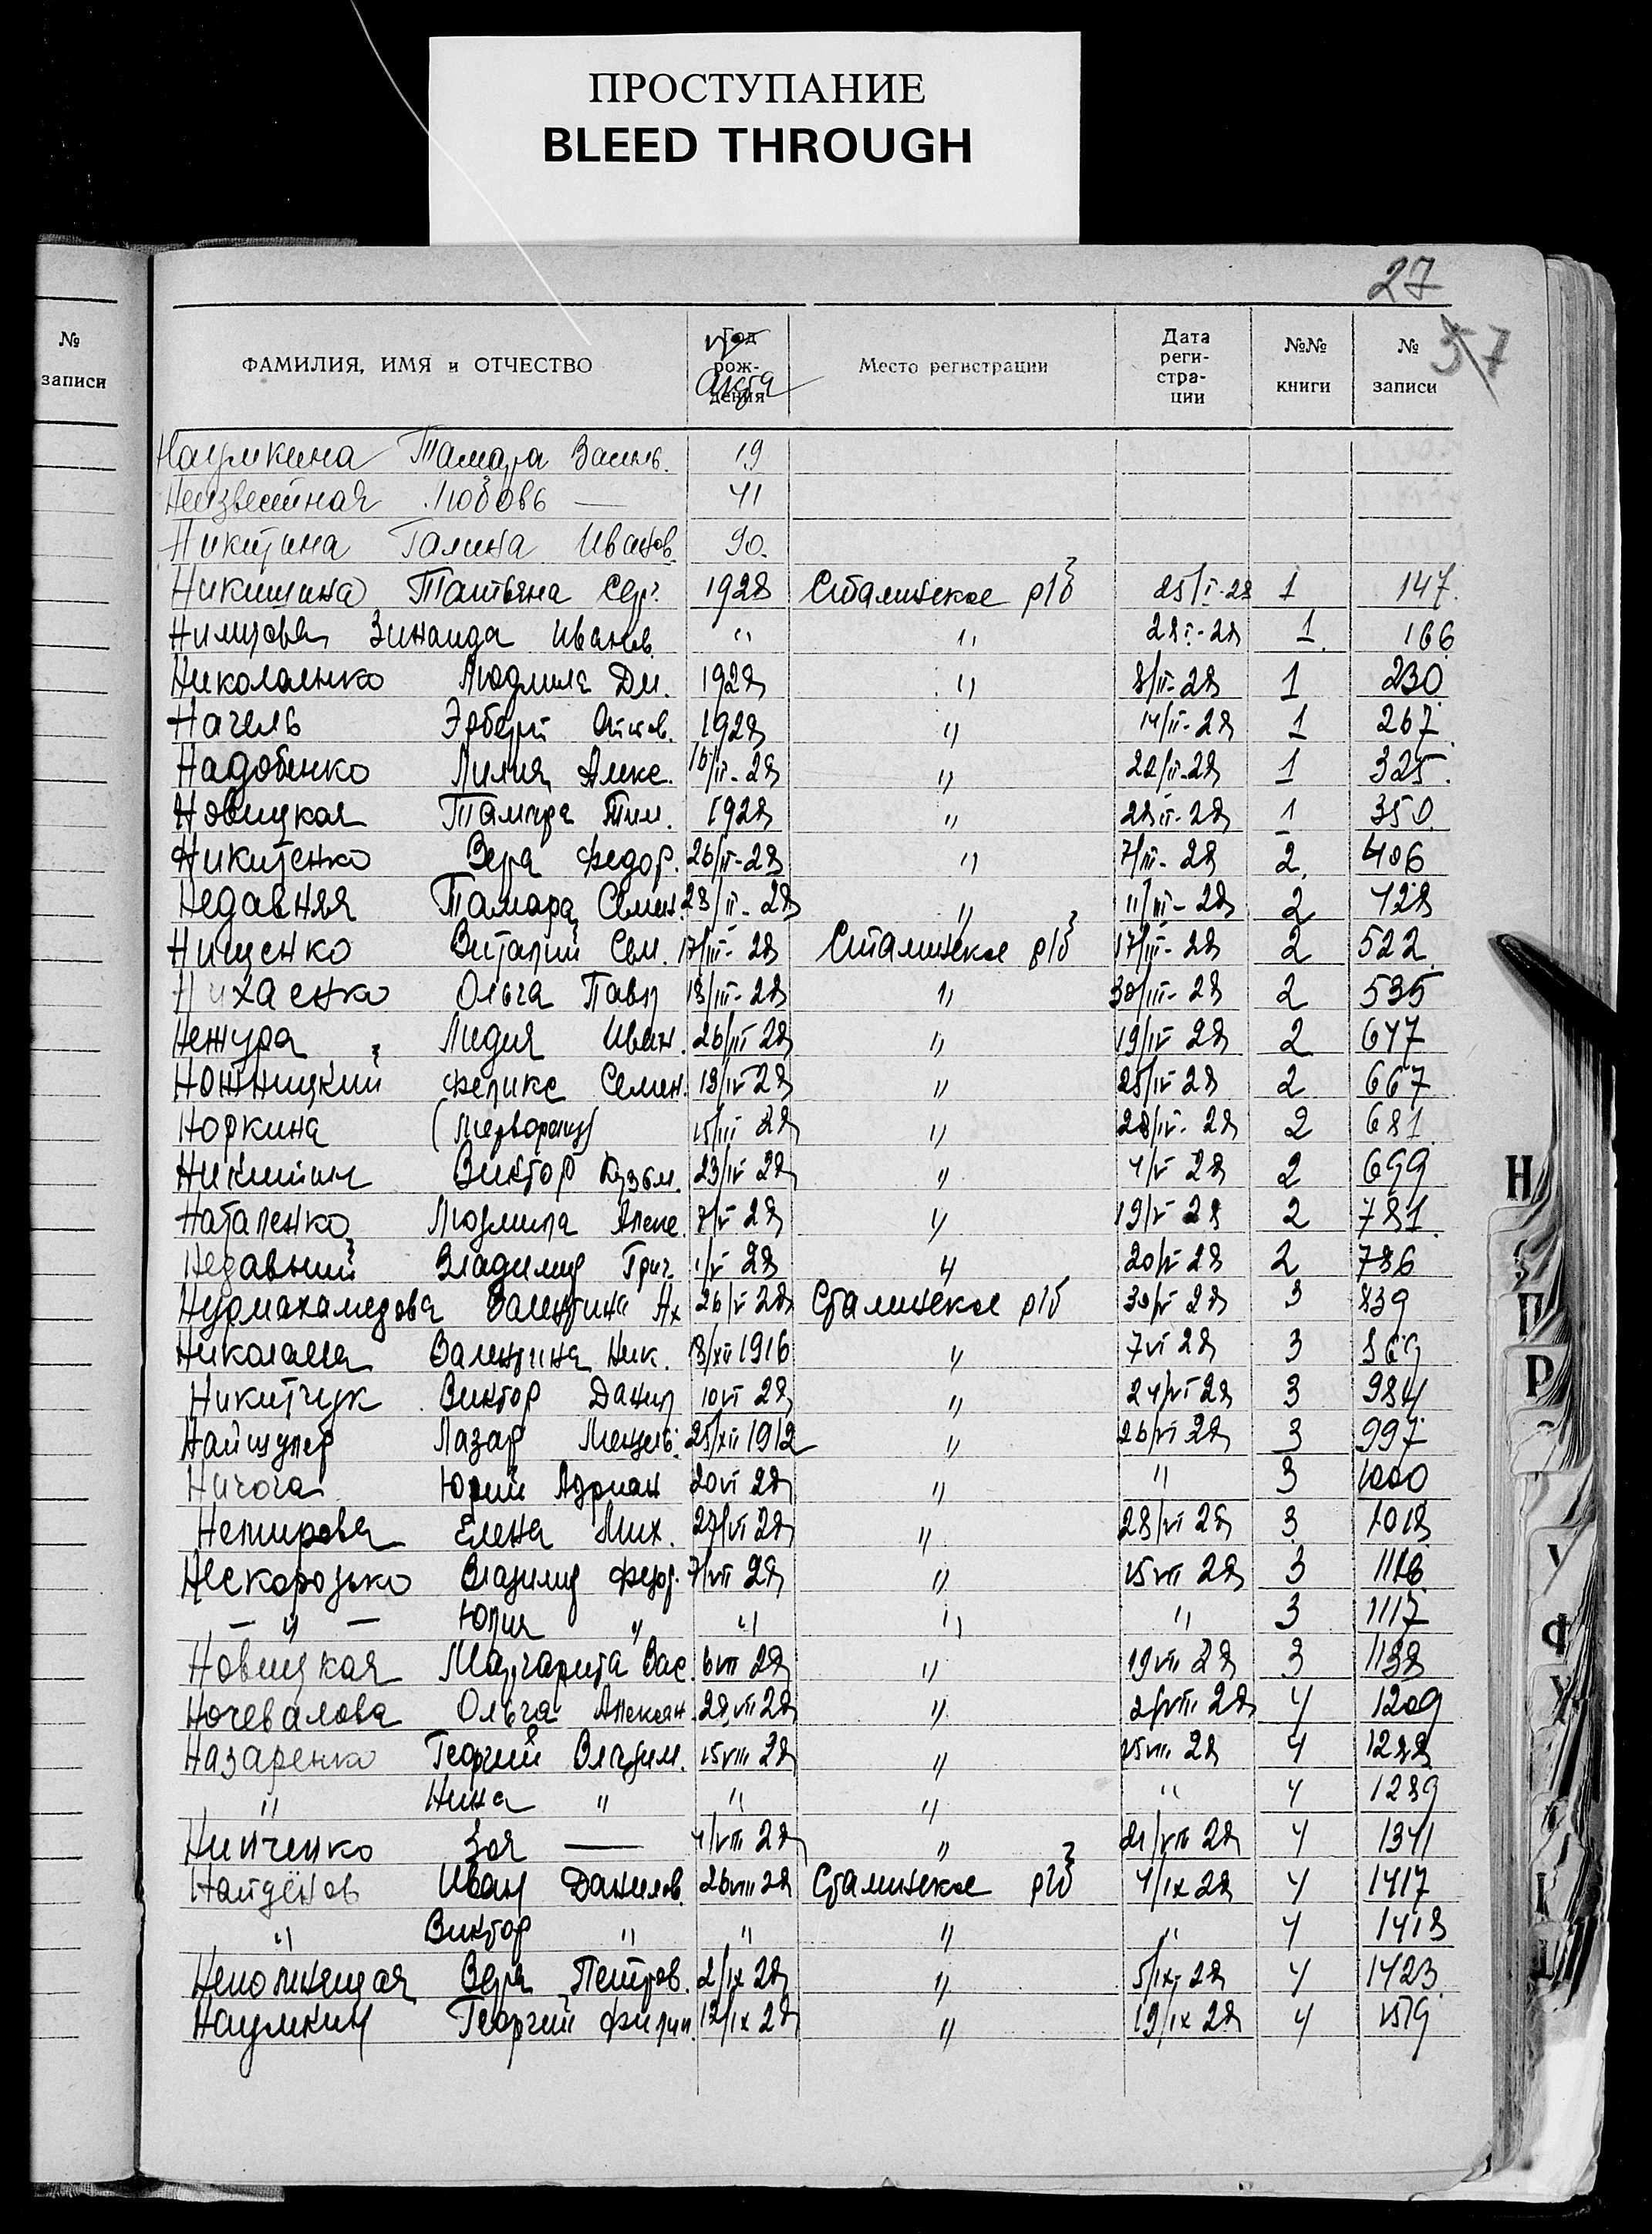 ПРОСТУПАНИЕ
BLEED THROUGH
27
37
№ записи
ФАМИЛИЯ, ИМЯ и ОТЧЕСТВО Год рождения акта Место регистрации Дата регистрации №№ книги № записи
Наумкина Тамара Василь. 19
Неизвестная Любовь — 41
Никитина Галина Иванов. 90.
Никишина Татьяна Сер. 1928 Сталинское р/б 25/I-28 1 147.
Зинаида Иванов. " " 28 I-28 1 166
Николаенко Людмила Дм. 1928 " 8/II-28 1 230
Нагель Эрберт 1928 " 14/II-28 1 267
Надобенко Лилия Алекс. 16/II-28 " 22/II-28 1 325.
Новицкая Тамара Тим. 1928 " 28 II-28 1 350
Никитенко Вера Федор. 26/II-28 " 7/III-28 2 406
Недавняя Тамара Семен. 23/II-28 " 11/III-28 2 428
Нищенко Виталий Сем. 17/III-28 Сталинское р/б 17/III-28 2 522
Нихаенко Ольга Павл 18/III-28 " 30/III-28 2 535
Нежура Лидия Иван. 26/III 28 " 19/IV 28 2 647
Ножницкий Феликс Семен. 19/IV 28 " 25/IV 28 2 667
Норкина (мерворожд) 15/III 28 " 28/IV-28 2 681
Никитин Виктор Кузьм. 23/IV 28 " 4/V 28 2 699
Наталенко Людмила Алекс. 7/V 28 " 19/V 28 2 781
Недавний Владимир Григ. 1/V 28 " 20/V 28 2 786
Нурмахамедова Валентина Ах 26/V 28 Сталинское р/б 30/V 28 3 839
Николаева Валентина Ник. 18/XII 1916 " 7 VI 28 3
Никитчук Виктор Данил 10 VI 28 " 24/VI 28 3 984
Найшулер Лазар 25/XII 1912 " 26/VI 28 3 997
Ничога Юрий Адриан 20 VI 28 " " 3 1000
Немирова Елена Мих. 27/VI 28 " 28/VI 28 3 1018
Нескородько Владимир Федор. 7/VII 28 " 15 VII 28 3 1116
— " — Юлия " " " " 3 1117
Новицкая Маргарита Вас. 6 VII 28 " 19 VII 28 3 1138
Ночевалова Ольга Алексан. 28 VII 28 " VIII 28 4 1209
Назаренко Георгий Владим. 15 VIII 28 " 25 VIII 28 4 1288
" Нина " " " " 4 1289
Нипченко Зоя — 4/VIII 28 " 21/VIII 28 4 1341
Найдёнов Иван Данилов. 26 VIII 28 Сталинское р/б 4/IX 28 4 1417
" Виктор " " " " 4 1418
Непомнящая Вера Петров. 2/IX 28 " 5/IX 28 4 1423
Наумкин Георгий Филип. 12/IX 28 " 19/IX 28 4 1519
Н
П
Р
У
Ф
Х